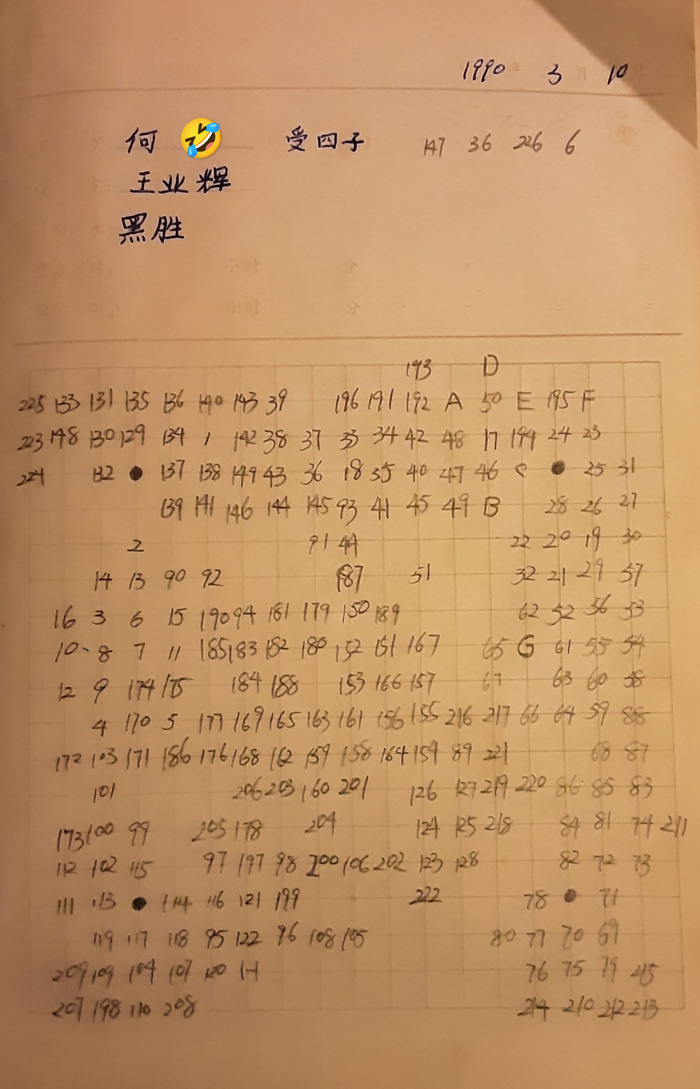 1990 3 10
何 受四子 147 36 226 6
王业辉
黑胜
193 D
225 133 131 135 136 140 143 39 196 191 192 A 50 E 195 F
223 148 130 129 134 1 142 38 37 33 34 42 48 17 194 24 23
224 132 137 138 149 43 36 18 35 40 47 46 C 25 31
139 141 146 144 145 93 41 45 49 B 28 26 27
2 91 44 22 20 19 30
14 13 90 92 187 51 32 21 29 57
16 3 6 15 190 94 181 179 150 189 62 52 56 53
10 8 7 11 185 183 182 180 152 151 167 65 G 61 55 54
12 9 174 175 184 188 153 166 157 67 63 60 58
4 170 5 177 169 165 163 161 156 155 216 217 66 64 59 88
172 103 171 186 176 168 162 159 158 164 159 89 221 68 87
101 206 203 160 201 126 127 219 220 86 85 83
173 100 99 205 178 204 124 125 218 84 81 74 211
112 102 115 97 197 98 200 106 202 123 128 82 72 73
111 113 114 116 121 199 222 78 71
119 117 118 95 122 96 108 105 80 77 70 69
209 109 104 107 120 H 76 75 79 215
207 198 110 208 214 210 212 213